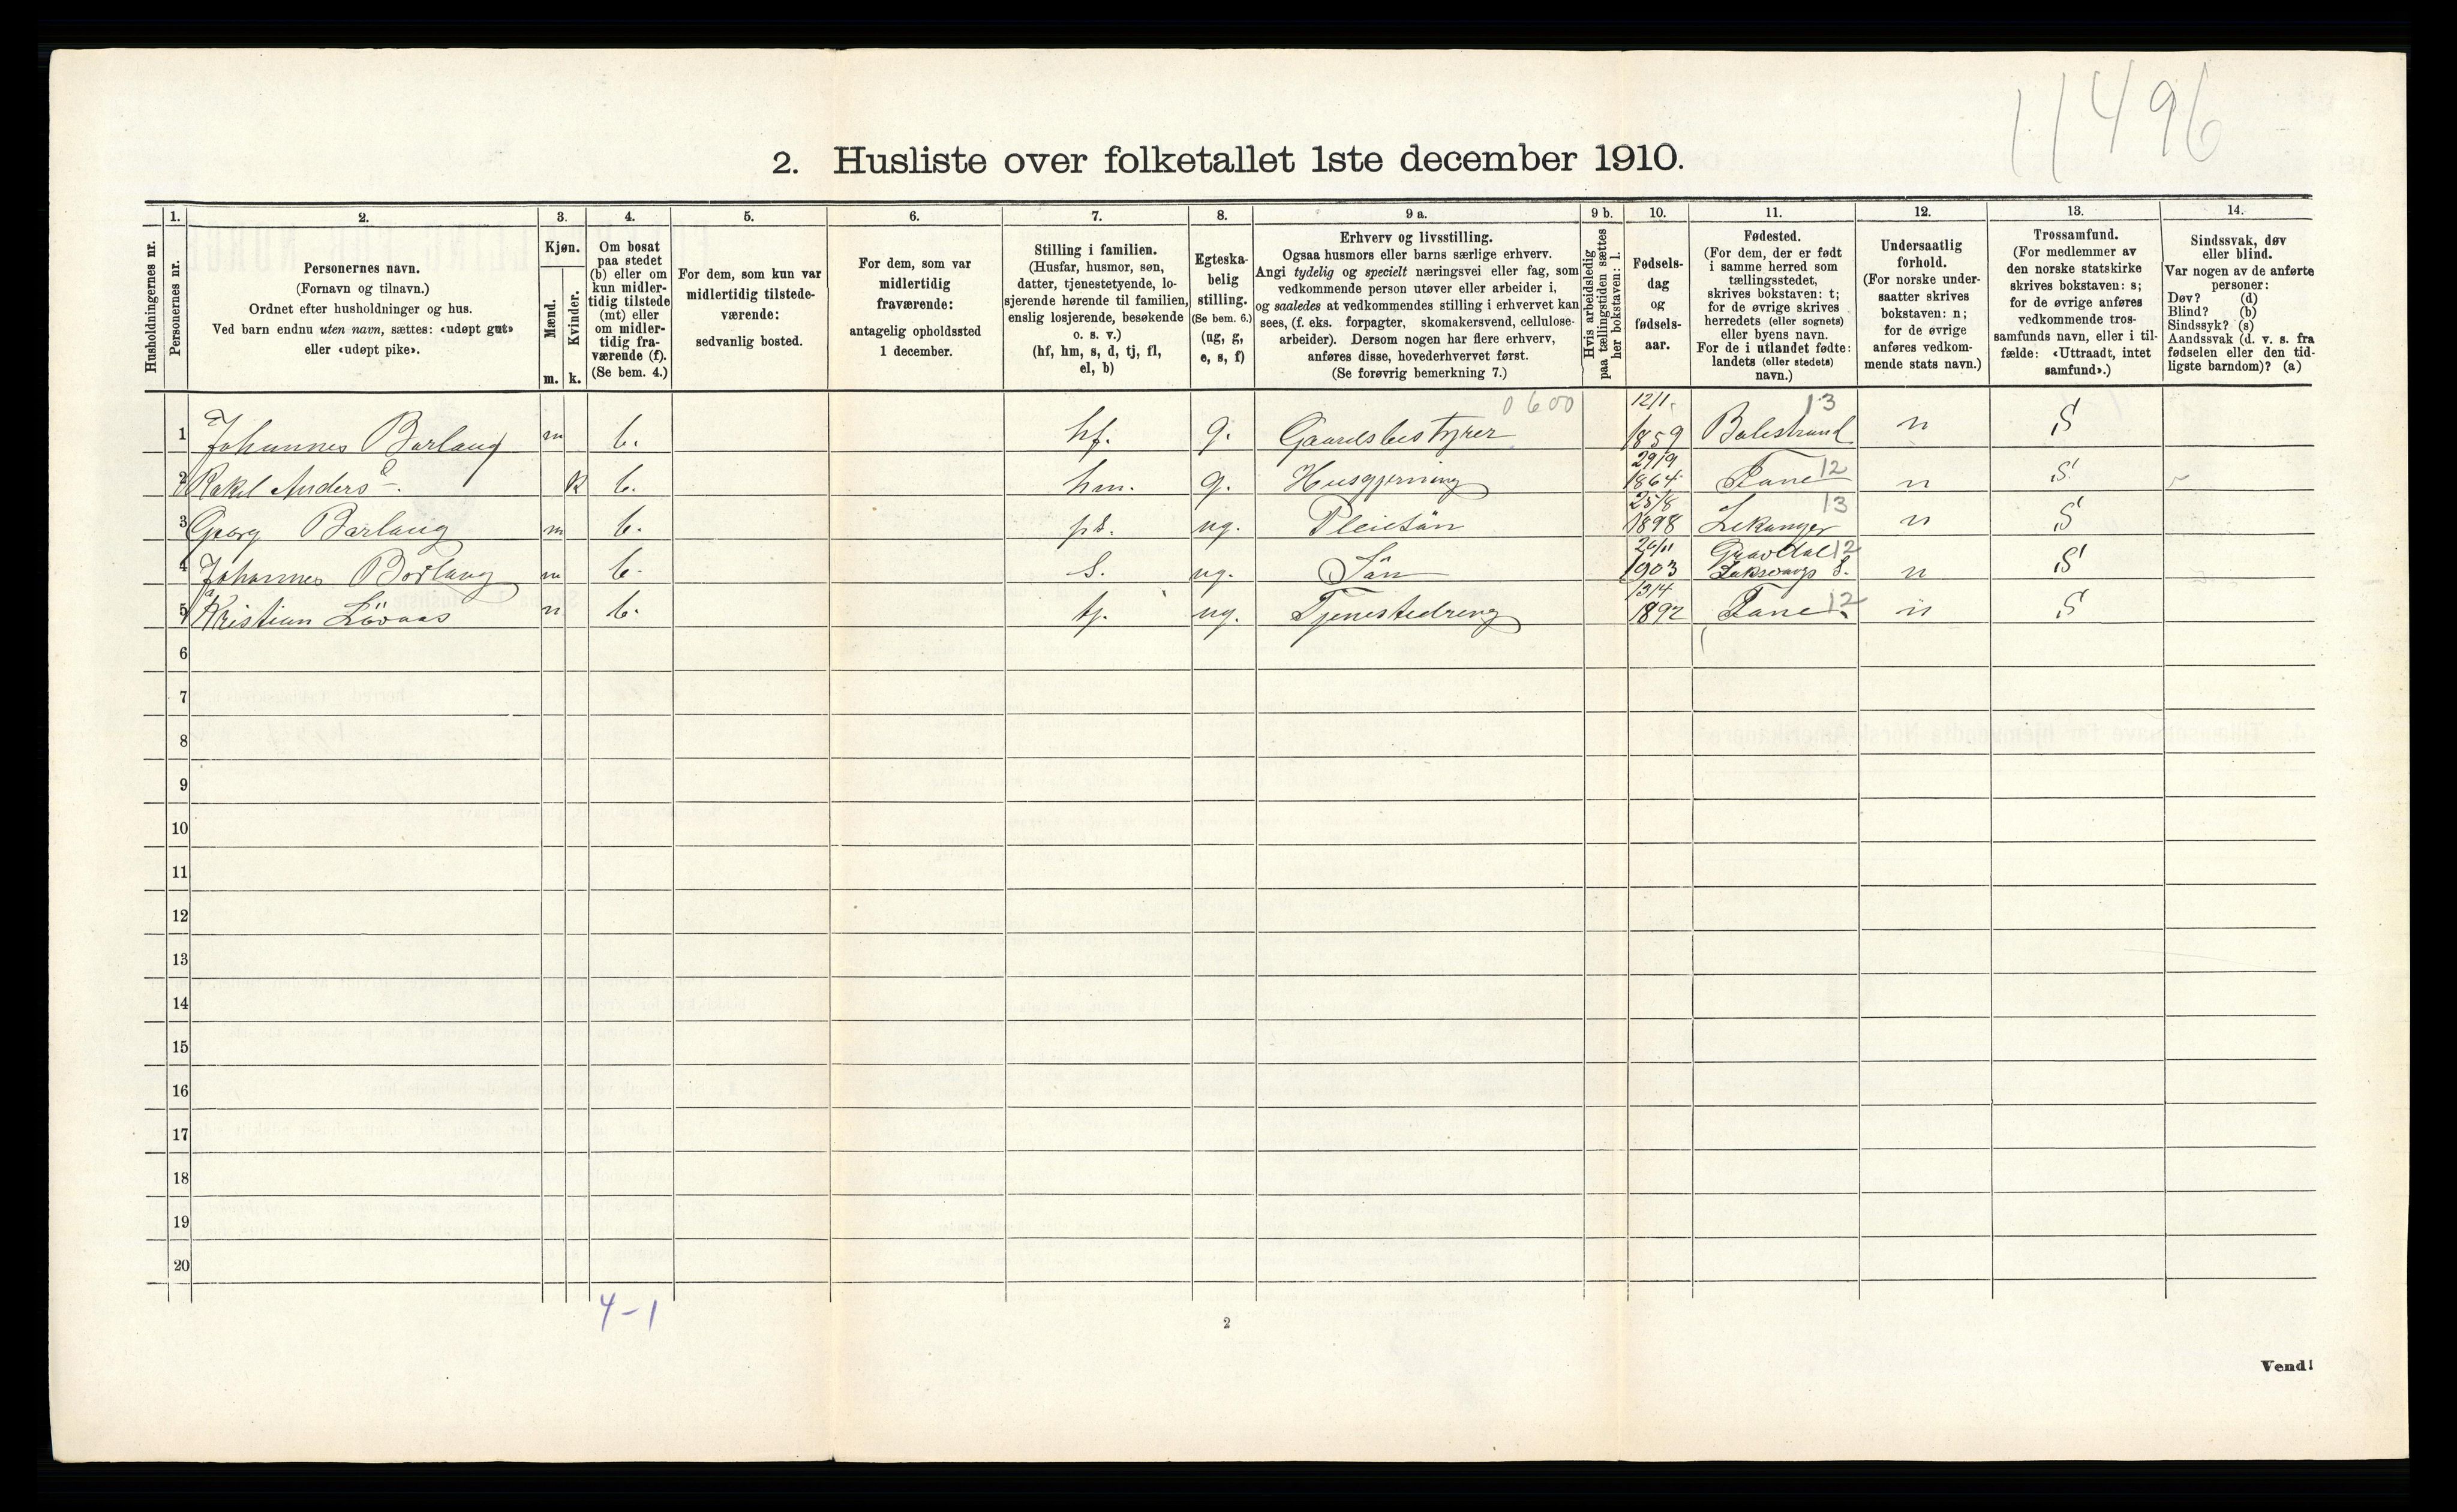 11496
2. Husliste over folketallet 1ste december 1910.
Husholdningernes nr.
1. Personernes nr.
2. Personernes navn.
(Fornavn og tilnavn.)
Ordnet efter husholdninger og hus.
Ved barn endnu uten navn, sættes: «udøpt gut»
eller «udøpt pike».
3. Kjøn.
Mænd. m.
Kvinder. k.
4. Om bosat
paa stedet
(b) eller om
kun midler-
tidig tilstede
(mt) eller
om midler-
tidig fra-
værende (f).
(Se bem. 4.)
5. For dem, som kun var
midlertidig tilstede-
værende:
sedvanlig bosted.
6. For dem, som var
midlertidig
fraværende:
antagelig opholdssted
1 december.
7. Stilling i familien.
(Husfar, husmor, søn,
datter, tjenestetyende, lo-
sjerende hørende til familien,
enslig losjerende, besøkende
o. s. v.)
(hf, hm, s, d, tj, fl,
el, b)
8. Egteska-
belig
stilling.
(Se bem. 6.)
(ug, g,
e, s, f)
9 a. Erhverv og livsstilling.
Ogsaa husmors eller barns særlige erhverv.
Angi tydelig og specielt næringsvei eller fag, som
vedkommende person utøver eller arbeider i,
og saaledes at vedkommendes stilling i erhvervet kan
sees, (f. eks. forpagter, skomakersvend, cellulose-
arbeider). Dersom nogen har flere erhverv,
anføres disse, hovederhvervet først.
(Se forøvrig bemerkning 7.)
9 b. Hvis arbeidsledig
paa tællingstiden sættes
her bokstaven: l.
10. Fødsels-
dag
og
fødsels-
aar.
11. Fødested.
(For dem, der er født
i samme herred som
tællingsstedet,
skrives bokstaven: t;
for de øvrige skrives
herredets (eller sognets)
eller byens navn.
For de i utlandet fødte:
landets (eller stedets)
navn.)
12. Undersaatlig
forhold.
(For norske under-
saatter skrives
bokstaven: n;
for de øvrige
anføres vedkom-
mende stats navn.)
13. Trossamfund.
(For medlemmer av
den norske statskirke
skrives bokstaven: s;
for de øvrige anføres
vedkommende tros-
samfunds navn, eller i til-
fælde: «Uttraadt, intet
samfund».)
14. Sindssvak, døv
eller blind.
Var nogen av de anførte
personer:
Døv? (d)
Blind? (b)
Sindssyk? (s)
Aandssvak (d. v. s. fra
fødselen eller den tid-
ligste barndom)? (a)
1 Johannes Borlaug m b. hf. g. Gaardsbestyrer 0600 12/1. 1859 Balestrand 13 n S
2 Rakel Anders k b. hm. g. Husgjerning 29/9 1864 Fane 12 n S
3 Georg Borlaug m b. ps. ug. Pleiesön 25/8 1898 Lekanger 13 n S
4 Johannes Borlaug m b. s. ug. Sön 26/11 1903 Gravdal 12 Laksevaag S. n S
5 Kristian Lövaas m b. tj. ug. Tjenestedreng 13/4 1892 Fane 12 n S
6
7
8
9
10
11
12
13
14
15
16
17
18
19
20
4-1
2
Vend!